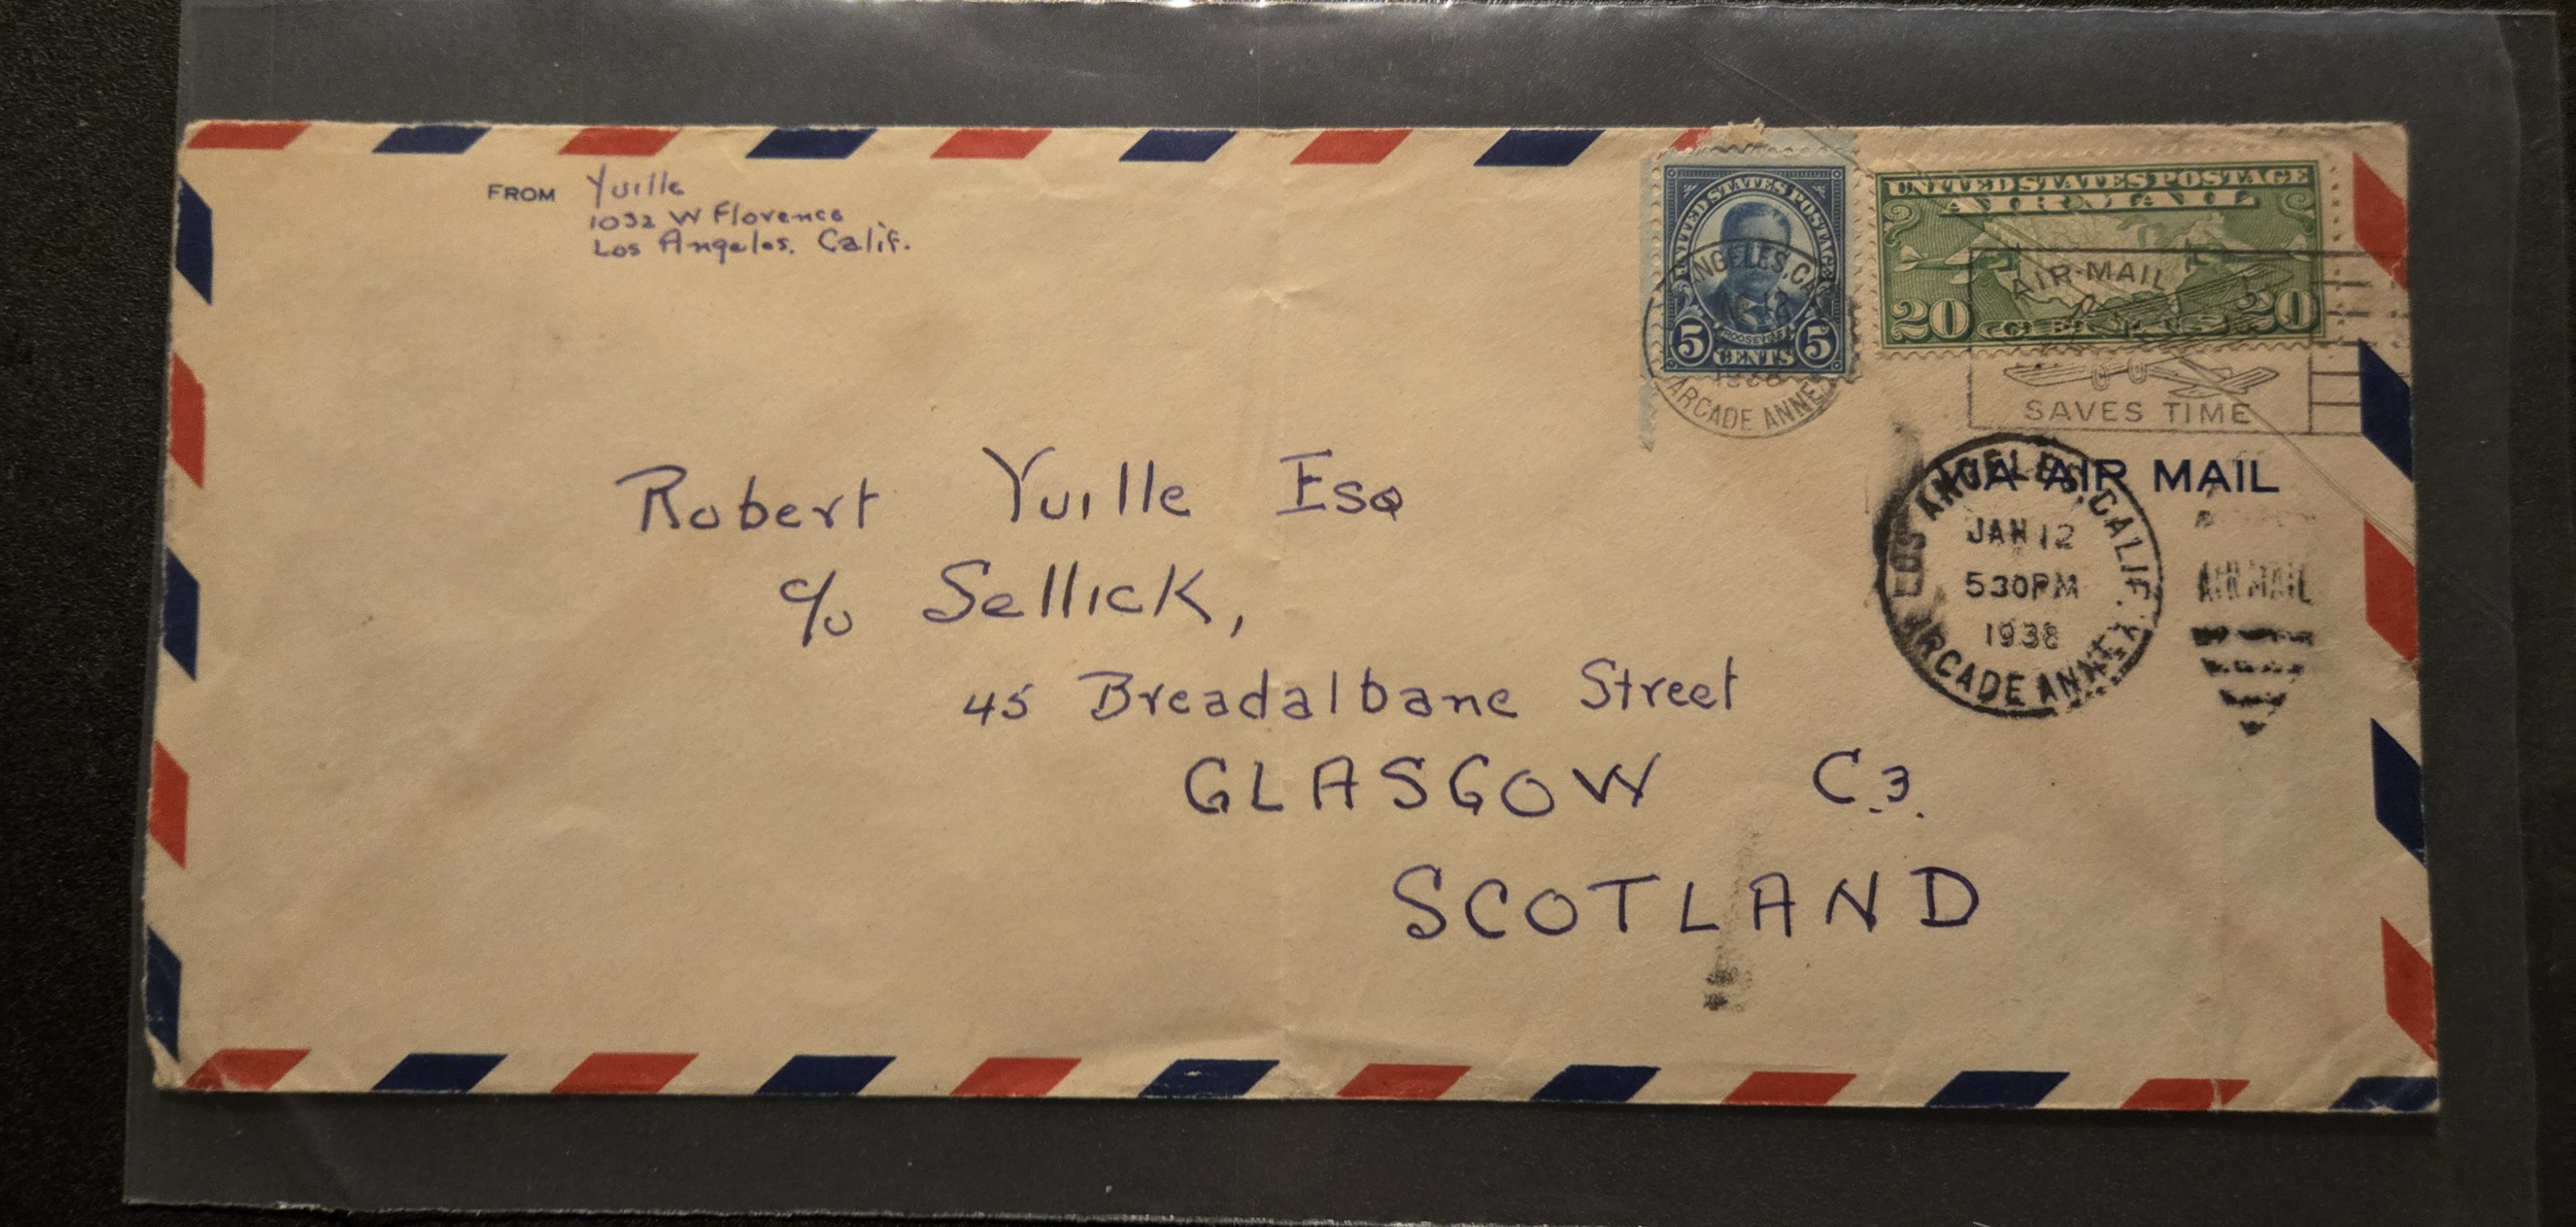 FROM Yuille
1032 W Florence
Los Angeles. Calif.
UNITED STATES POSTAGE
ROOSEVELT
5 CENTS 5
ANGELES, CA
ARCADE ANNEX
UNITED STATES POSTAGE
AIR MAIL
20 CENTS 20
AIR-MAIL
SAVES TIME
VIA AIR MAIL
LOS ANGELES, CALIF.
JAN 12
530PM
1938
ARCADE ANNEX
AIR MAIL
Robert Yuille Esq
c/o Sellick,
45 Breadalbane Street
GLASGOW C.3.
SCOTLAND